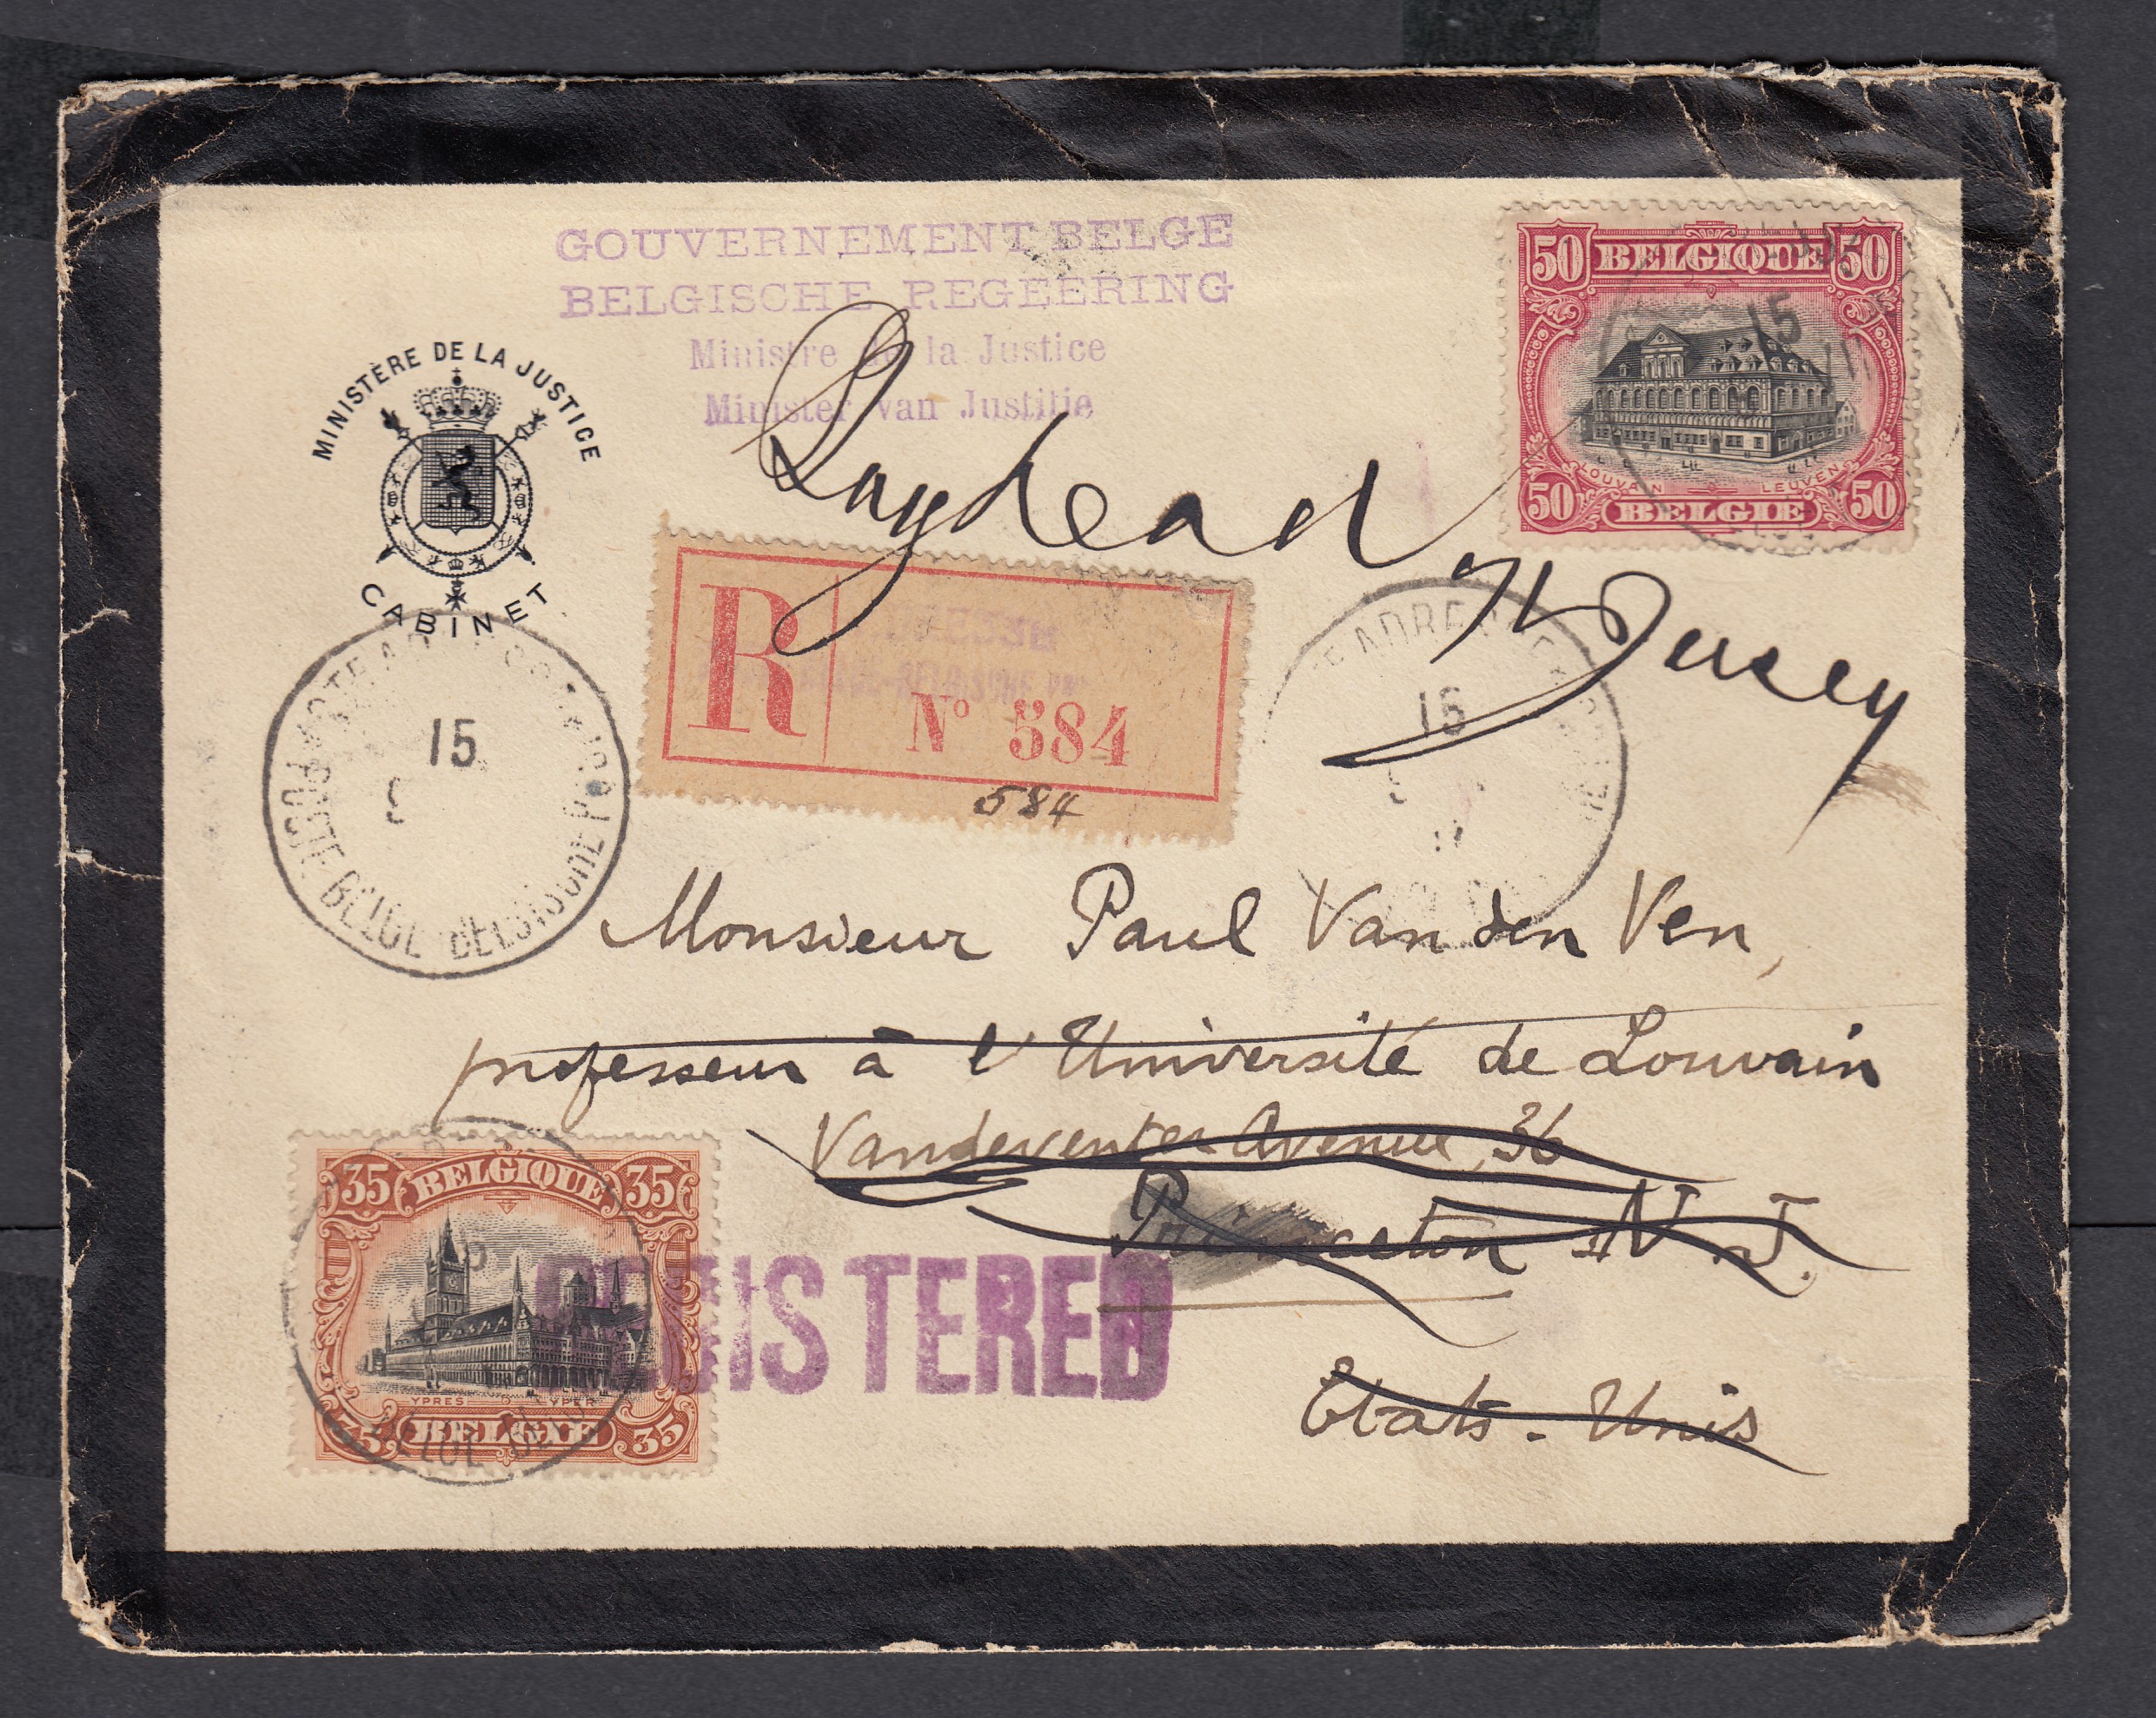 GOUVERNEMENT BELGE
BELGISCHE REGEERING
Ministre de la Justice
Minister van Justitie
MINISTÈRE DE LA JUSTICE
CABINET
50 BELGIQUE 50
15
LOUVAIN LEUVEN
50 BELGIE 50
Jersey
R
Nº 584
584
15
POSTE BELGE BELGISCHE
15
Monsieur Paul Van den Ven,
professeur à l'Université de Louvain
Vandeventer Avenue, 36
Princeton N. J.
Etats-Unis
35 BELGIQUE 35
YPRES YPER
35 BELGIE 35
REGISTERED